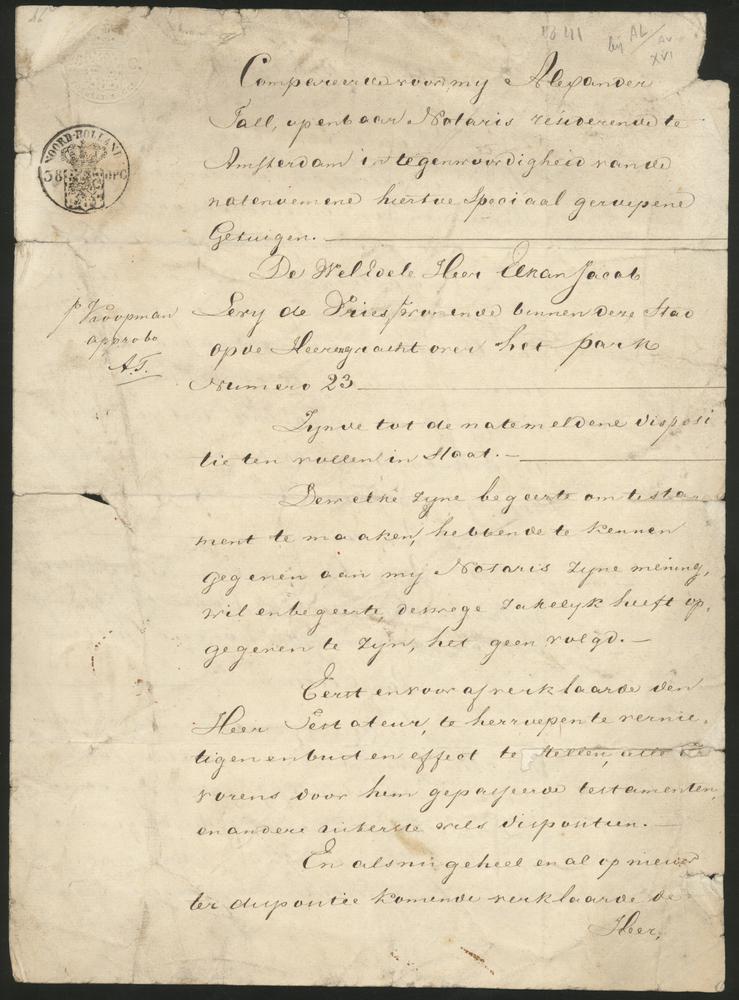 Compareerde voor my Alexander
Tall, openbaar Notaris resideerende te
Amsterdam in tegenwoordigheid van de
natenoemene hiertoe Speciaal geroepene
Getuigen.
De WelEdele Heer Elkan Jacob
Levy de Vries, woonende binnen deze Stad
op de Heeregracht over het park
Numero 23
Zynde tot de natemeldene disposi
tie ten vollen in Staat.
Dewelke zyne begeerte om testa
ment te maaken, hebbende te kennen
gegeven aan my Notaris zyne mening,
wil en begeerte, deswege zakelyk heeft op,
gegeven te zyn, het geen volgd.
Eerst en voor af verklaarde den
Heer Testateur, te herroepen te vernie,
tigen en buiten effect te stellen, alle
vorens door hem gepasseerde testamenten,
en andere uiterste wils dispositien.
En als nu geheel en al op nieuw
ter dispositie komende verklaarde de
Heer,
Koopman
approbo
A.T.
NOORD-HOLLAND
38
OPC
AL
XVI